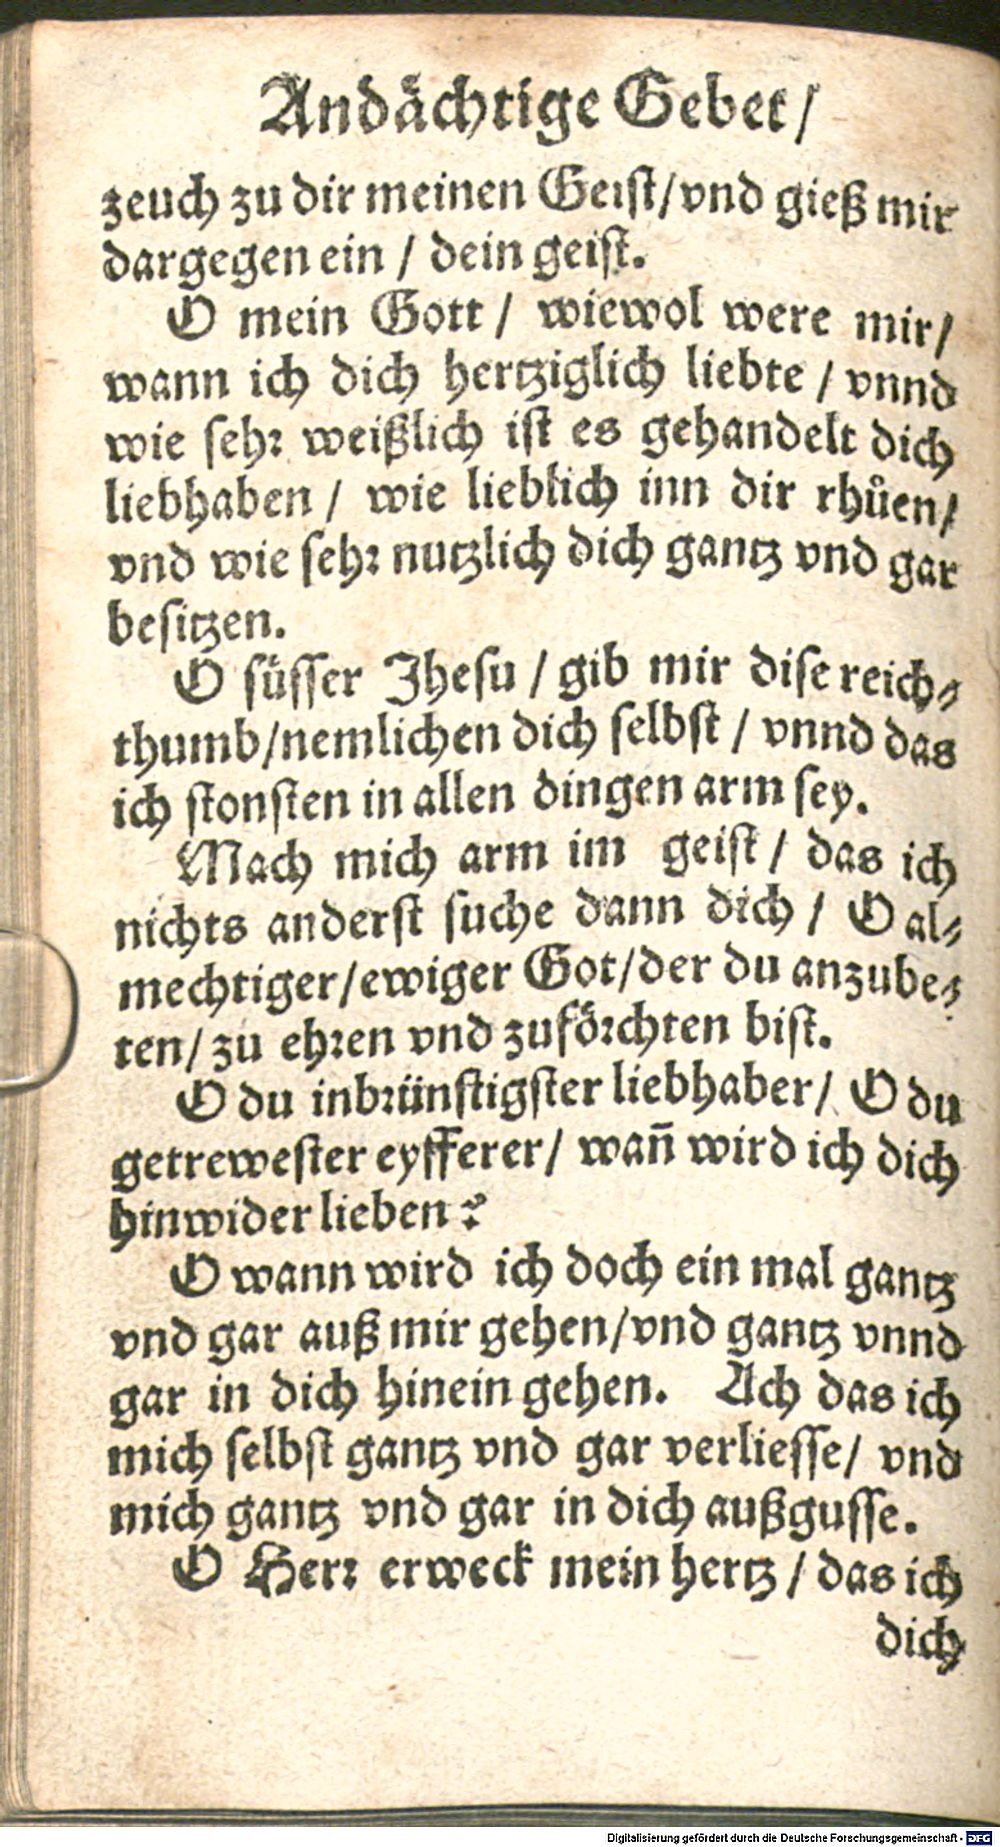 Andächtige Gebet/
zeuch zu dir meinen Geist/vnd gieß mir
dargegen ein / dein geist.
O mein Gott / wiewol were mir/
wann ich dich hertziglich liebte / vnnd
wie sehr weißlich ist es gehandelt dich
liebhaben / wie lieblich inn dir rhůen/
vnd wie sehr nutzlich dich gantz vnd gar
besitzen.
O süsser Jhesu / gib mir dise reich-
thumb/nemlichen dich selbst / vnnd das
ich stonsten in allen dingen arm sey.
Mach mich arm im geist / das ich
nichts anderst suche dann dich / O al-
mechtiger/ewiger Got/der du anzube-
ten/zu ehren vnd zuförchten bist.
O du inbrünstigster liebhaber/ O du
getrewester eyfferer/ wañ wird ich dich
hinwider lieben?
O wann wird ich doch ein mal gantz
vnd gar auß mir gehen/vnd gantz vnnd
gar in dich hinein gehen. Ach das ich
mich selbst gantz vnd gar verliesse/ vnd
mich gantz vnd gar in dich außgusse.
O Herr erweck mein hertz / das ich
dich
Digitalisierung gefördert durch die Deutsche Forschungsgemeinschaft - DFG